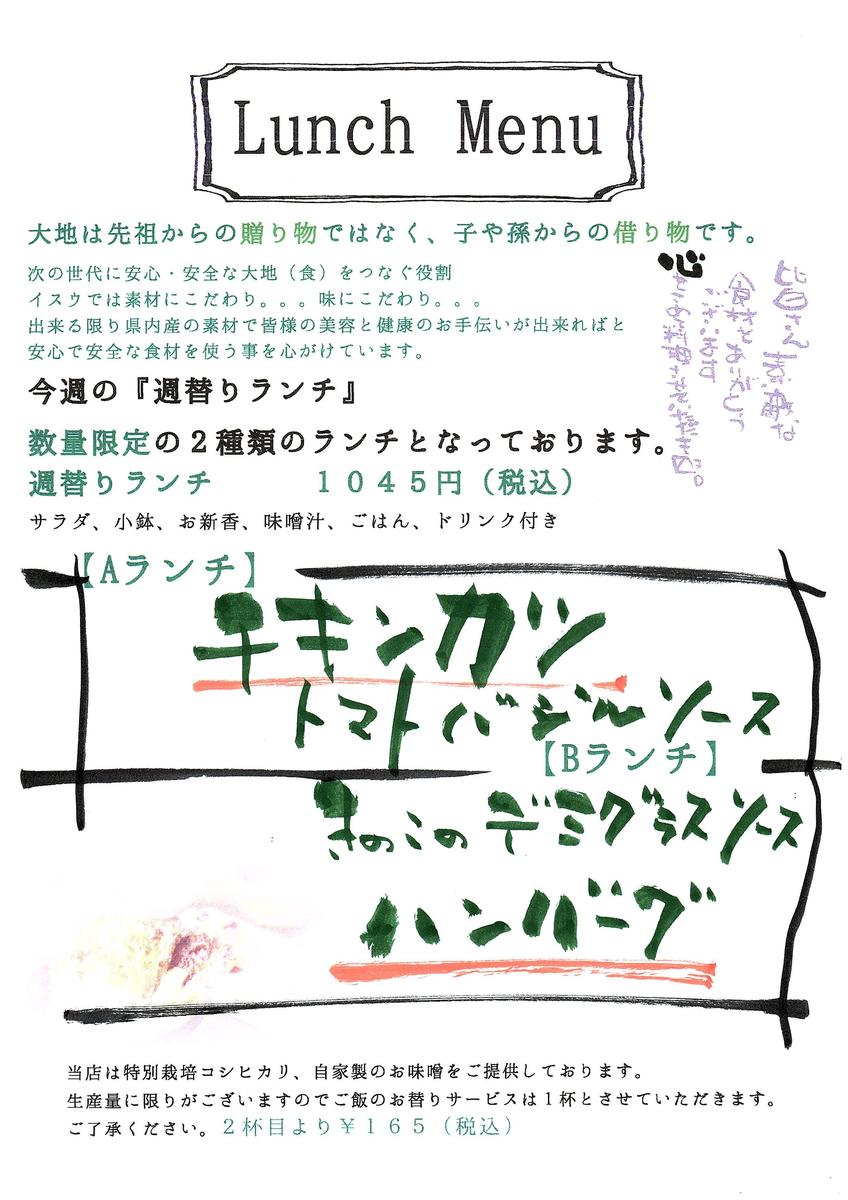 Lunch Menu
大地は先祖からの贈り物ではなく、子や孫からの借り物です。
次の世代に安心・安全な大地（食）をつなぐ役割
イスウでは素材にこだわり。。。味にこだわり。。。
出来る限り県内産の素材で皆様の美容と健康のお手伝いが出来ればと
安心で安全な食材を使う事を心がけています。
皆さん素敵な
食材をありがとう
ございます
心
をこめて料理させていただきます。
今週の『週替りランチ』
数量限定の２種類のランチとなっております。
週替りランチ　１０４５円（税込）
サラダ、小鉢、お新香、味噌汁、ごはん、ドリンク付き
【Aランチ】
チキンカツ
トマトバジルソース
【Bランチ】
きのこのデミグラスソース
ハンバーグ
当店は特別栽培コシヒカリ、自家製のお味噌をご提供しております。
生産量に限りがございますのでご飯のお替りサービスは１杯とさせていただきます。
ご了承ください。２杯目より￥１６５（税込）